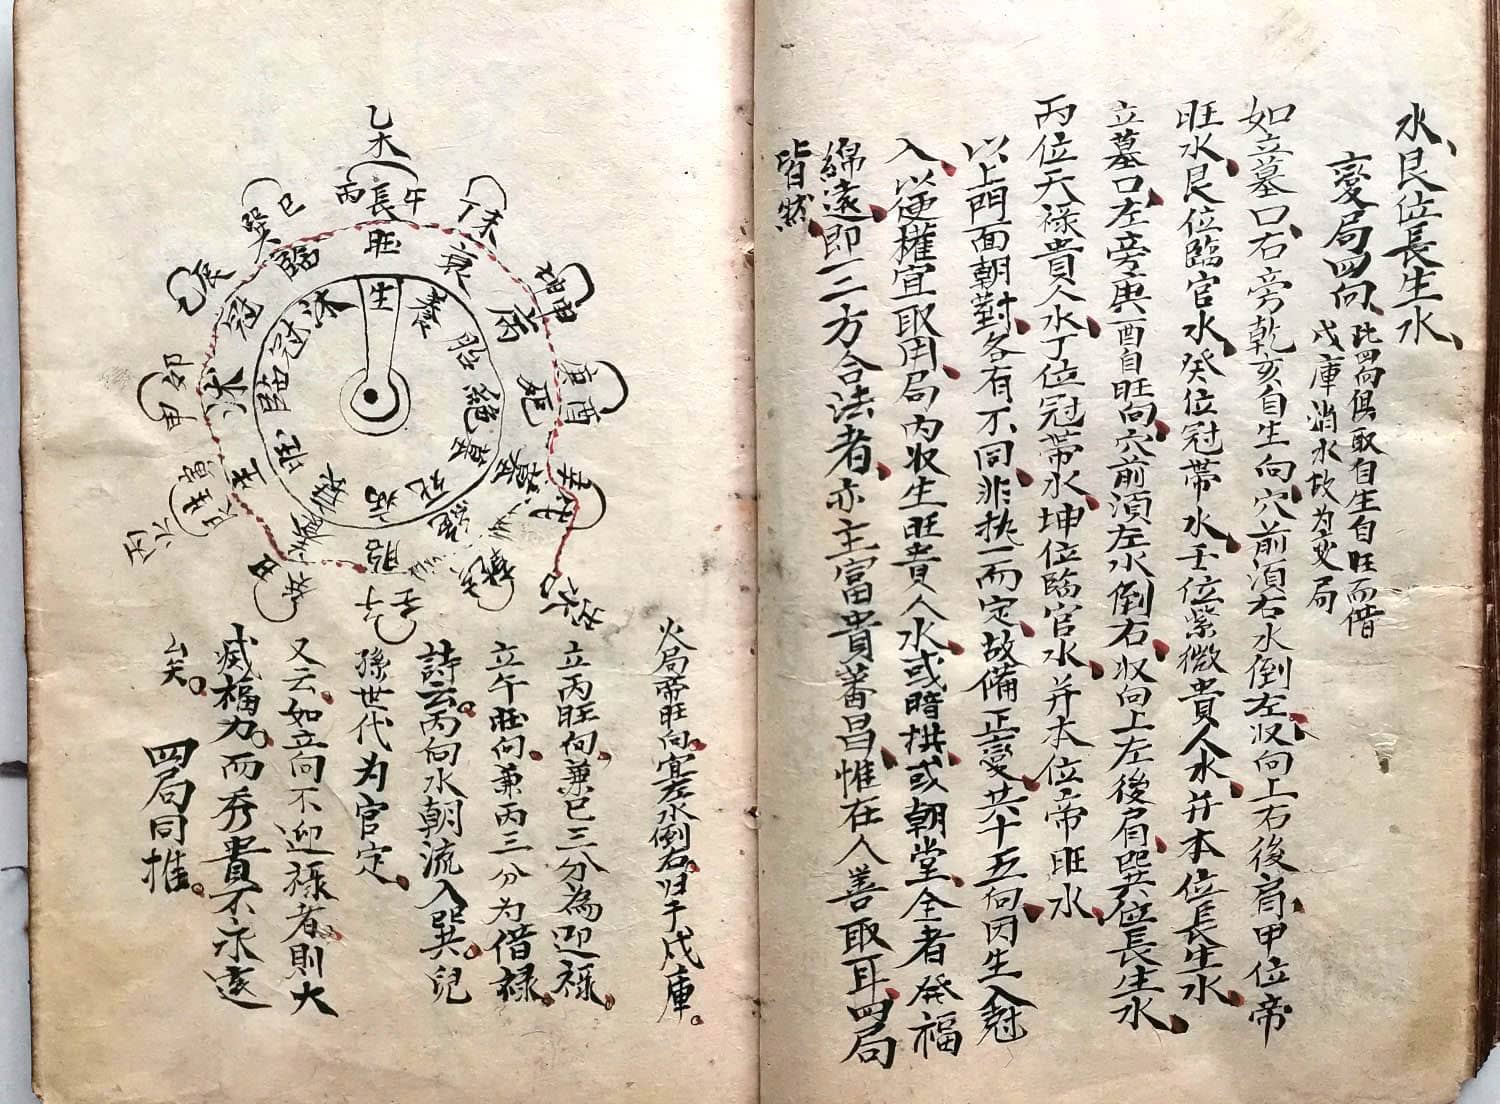 水艮位長生水
變局四向
此四向俱取自生自旺而借
戌庫消水故為变局
如立墓口右旁乾亥自生向穴前須右水倒左収向上右後肩甲位帝
旺水艮位臨官水癸位冠帶水壬位紫微貴人水并本位長生水
立墓口左旁庚酉自旺向穴前須左水倒右収向上左後肩巽位長生水
丙位天禄貴人水丁位冠帶水坤位臨官水并本位帝旺水
以上門面朝對各有不同非执一而定故備正變共十五向因生入尅
入以便權宜取用局内収生旺貴人水或暗拱或朝堂全者発福
綿遠即一二方合法者亦主富貴蕃昌惟在人善取耳四局
皆然
乙木
丙長午
丁未
坤申
庚酉
巽巳
乙辰
甲卯
旺
衰
病
死
墓
絕
胎
臨
冠
沐
生
養
胎
絕
墓
死
病
沐
冠
臨
火局帝旺向宜左水倒右归于戌庫
立丙旺向兼巳三分為迎禄
立午旺向兼丙三分为借禄
詩云丙向水朝流入巽兒
孫世代为官定
又云如立向不迎禄者則大
减福力而秀貴不永遠
矣
四局同推